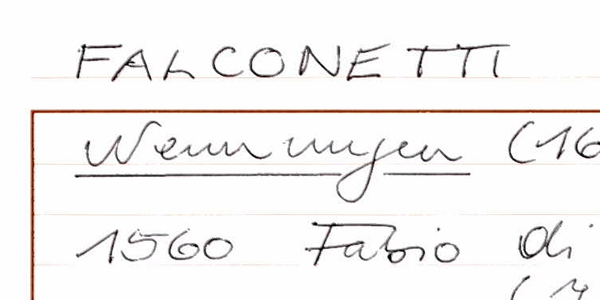 FALCONETTI
Nennungen (16
1560 Fabio di